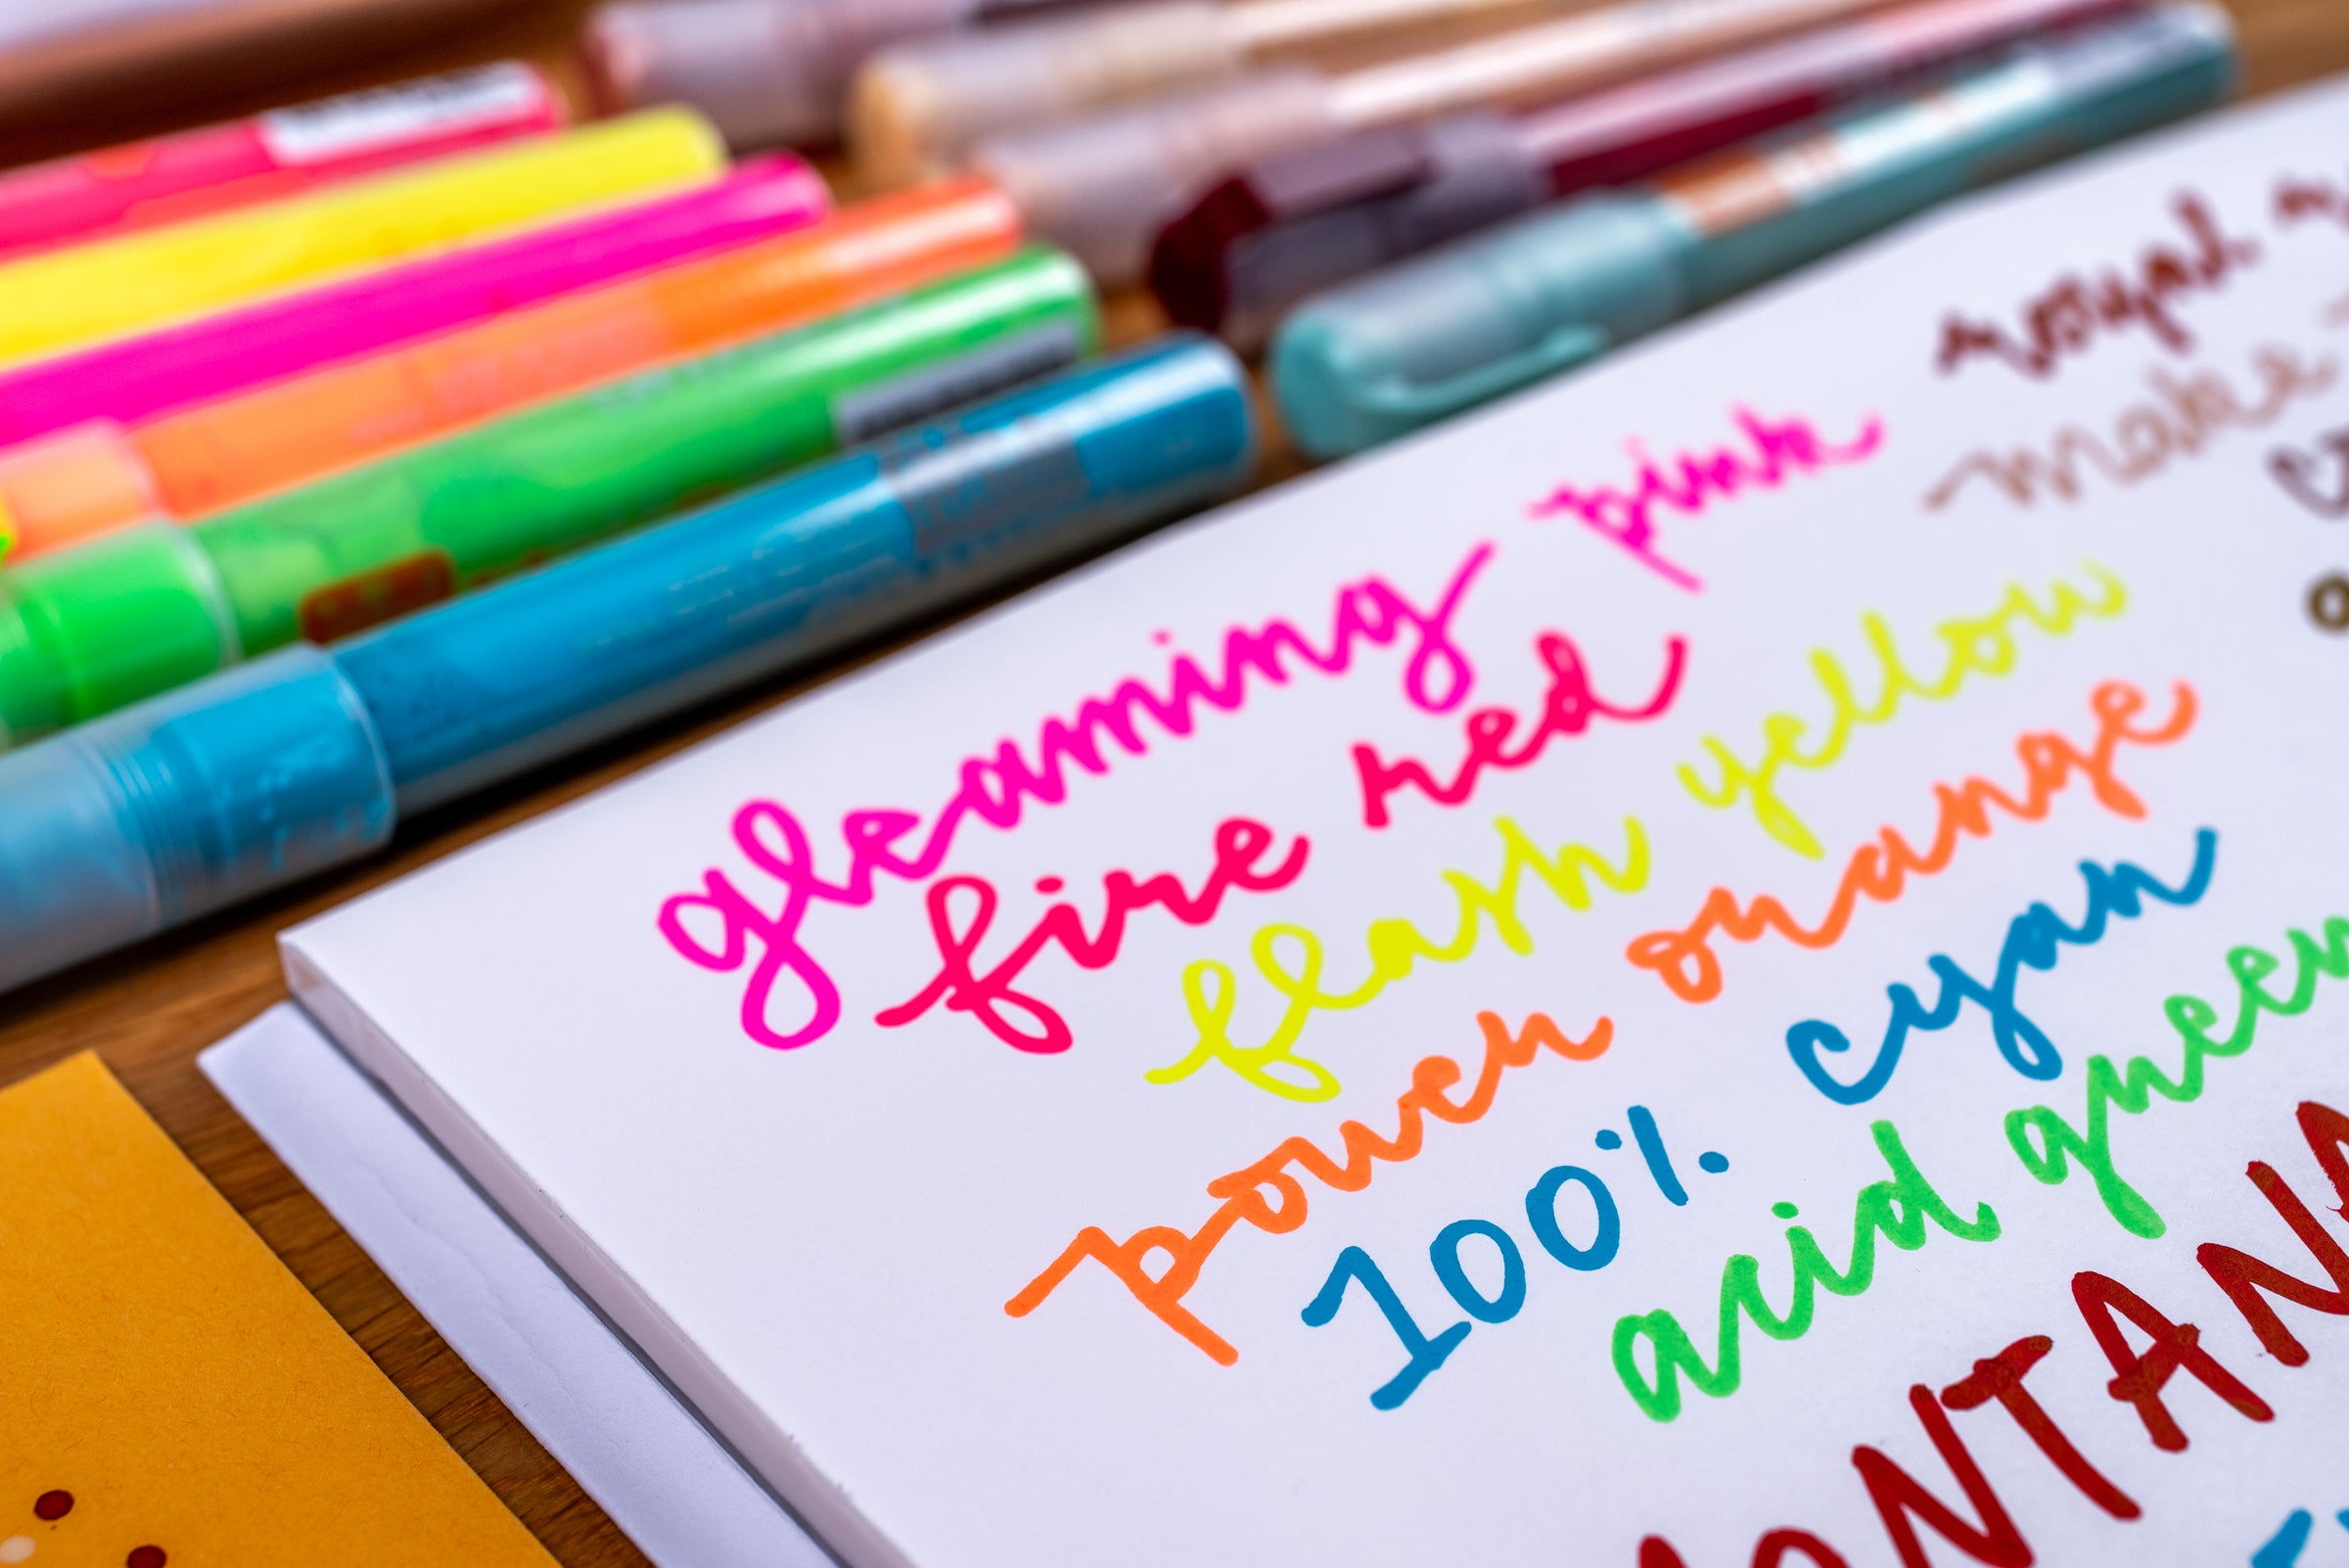 gleaming pink
fire red
flash yellow
power orange
100% cyan
acid green
royal
make